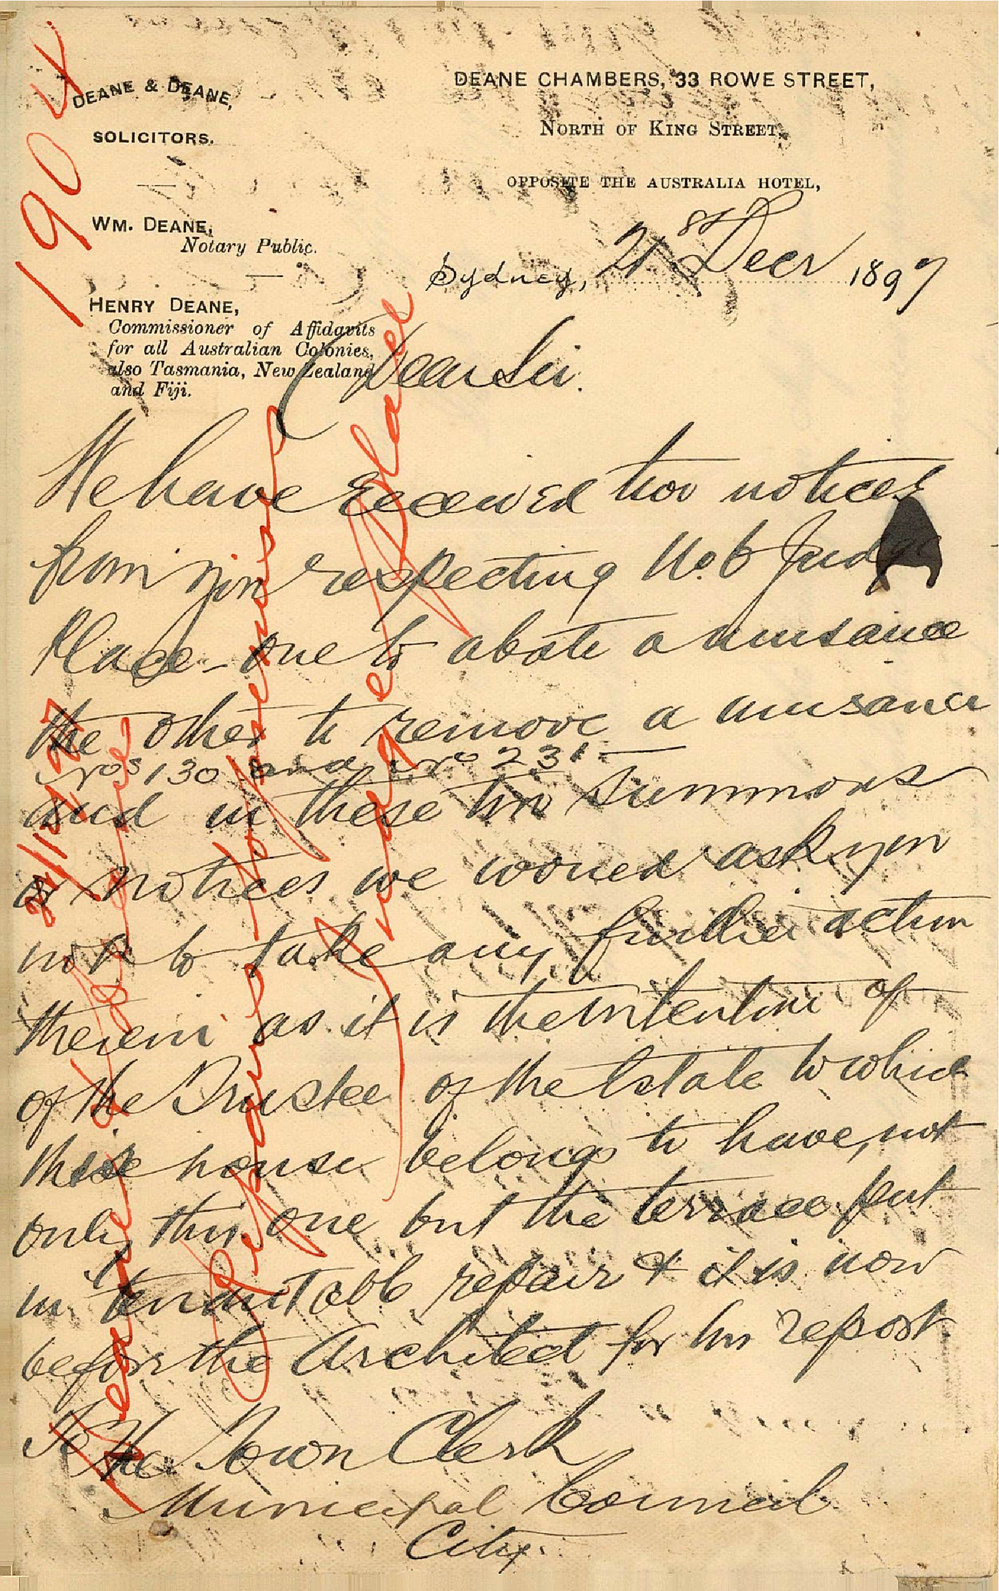 DEANE & DEANE,
SOLICITORS.
WM. DEANE,
Notary Public.
HENRY DEANE,
Commissioner of Affidavits
for all Australian Colonies,
also Tasmania, New Zealand
and Fiji.
DEANE CHAMBERS, 33 ROWE STREET,
NORTH OF KING STREET,
OPPOSITE THE AUSTRALIA HOTEL,
Sydney, 21st Decr 1897
Dear Sir.
We have received two notices
from you respecting No. 6 Judge
Place - one to abate a nuisance
the other to remove a nuisance
Nos 130 and No 231.
and in these two summons
or notices we would ask you
not to take any further action
therein as it is the intention of
of the Trustee of the Estate to which
these house belongs to have, not
only this one but the terrace put
in tenantable repair & it is now
before the Architect for his report
To The Town Clerk
Municipal Council
City.
1904
21/12/97
Deane & Deane
Repairs to premises
Judge Place